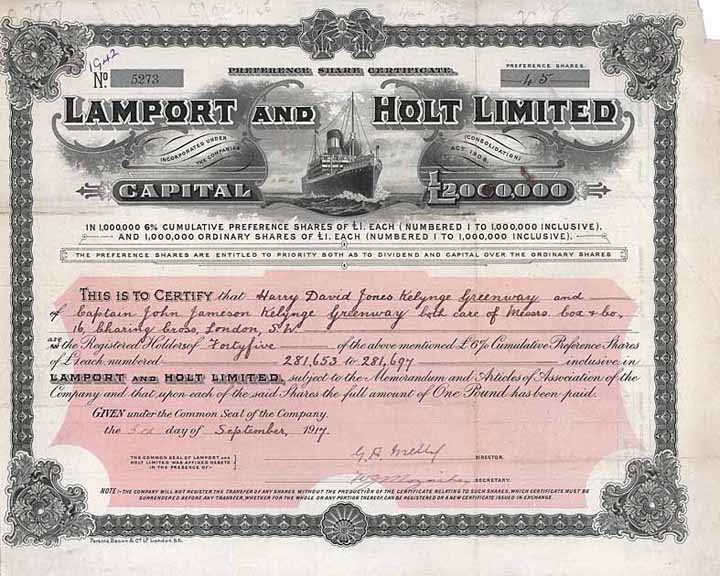 1942
No. 5273
PREFERENCE SHARE CERTIFICATE.
PREFERENCE SHARES.
45
LAMPORT AND HOLT LIMITED
INCORPORATED UNDER THE COMPANIES (CONSOLIDATION) ACT 1908.
CAPITAL £2000,000
IN 1,000,000 6% CUMULATIVE PREFERENCE SHARES OF £1. EACH (NUMBERED 1 TO 1,000,000 INCLUSIVE).
AND 1,000,000 ORDINARY SHARES OF £1. EACH (NUMBERED 1 TO 1,000,000 INCLUSIVE).
THE PREFERENCE SHARES ARE ENTITLED TO PRIORITY BOTH AS TO DIVIDEND AND CAPITAL OVER THE ORDINARY SHARES
THIS IS TO CERTIFY that Harry David Jones Kelynge Greenway and
of Captain John Jameson Kelynge Greenway both care of Messrs. Cox & Co.,
16, Charing Cross, London, S.W.
are the Registered Holders of Fortyfive of the above mentioned £6% Cumulative Preference Shares
of £1 each numbered 281,653 to 281,697 inclusive in
LAMPORT AND HOLT LIMITED, subject to the Memorandum and Articles of Association of the
Company and that upon each of the said Shares the full amount of One Pound has been paid.
GIVEN under the Common Seal of the Company.
the 5th day of September, 1917.
THE COMMON SEAL OF LAMPORT AND
HOLT LIMITED WAS AFFIXED HERETO
IN THE PRESENCE OF:-
DIRECTOR.
SECRETARY.
NOTE:- THE COMPANY WILL NOT REGISTER THE TRANSFER OF ANY SHARES WITHOUT THE PRODUCTION OF THE CERTIFICATE RELATING TO SUCH SHARES, WHICH CERTIFICATE MUST BE
SURRENDERED BEFORE ANY TRANSFER, WHETHER FOR THE WHOLE OR ANY PORTION THEREOF, CAN BE REGISTERED OR A NEW CERTIFICATE ISSUED IN EXCHANGE.
London. E.C.